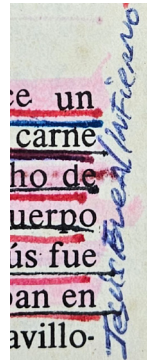 ce un
carne
ho de
uerpo
ús fue
ban en
avillo-
Jesús en el INFIERNO